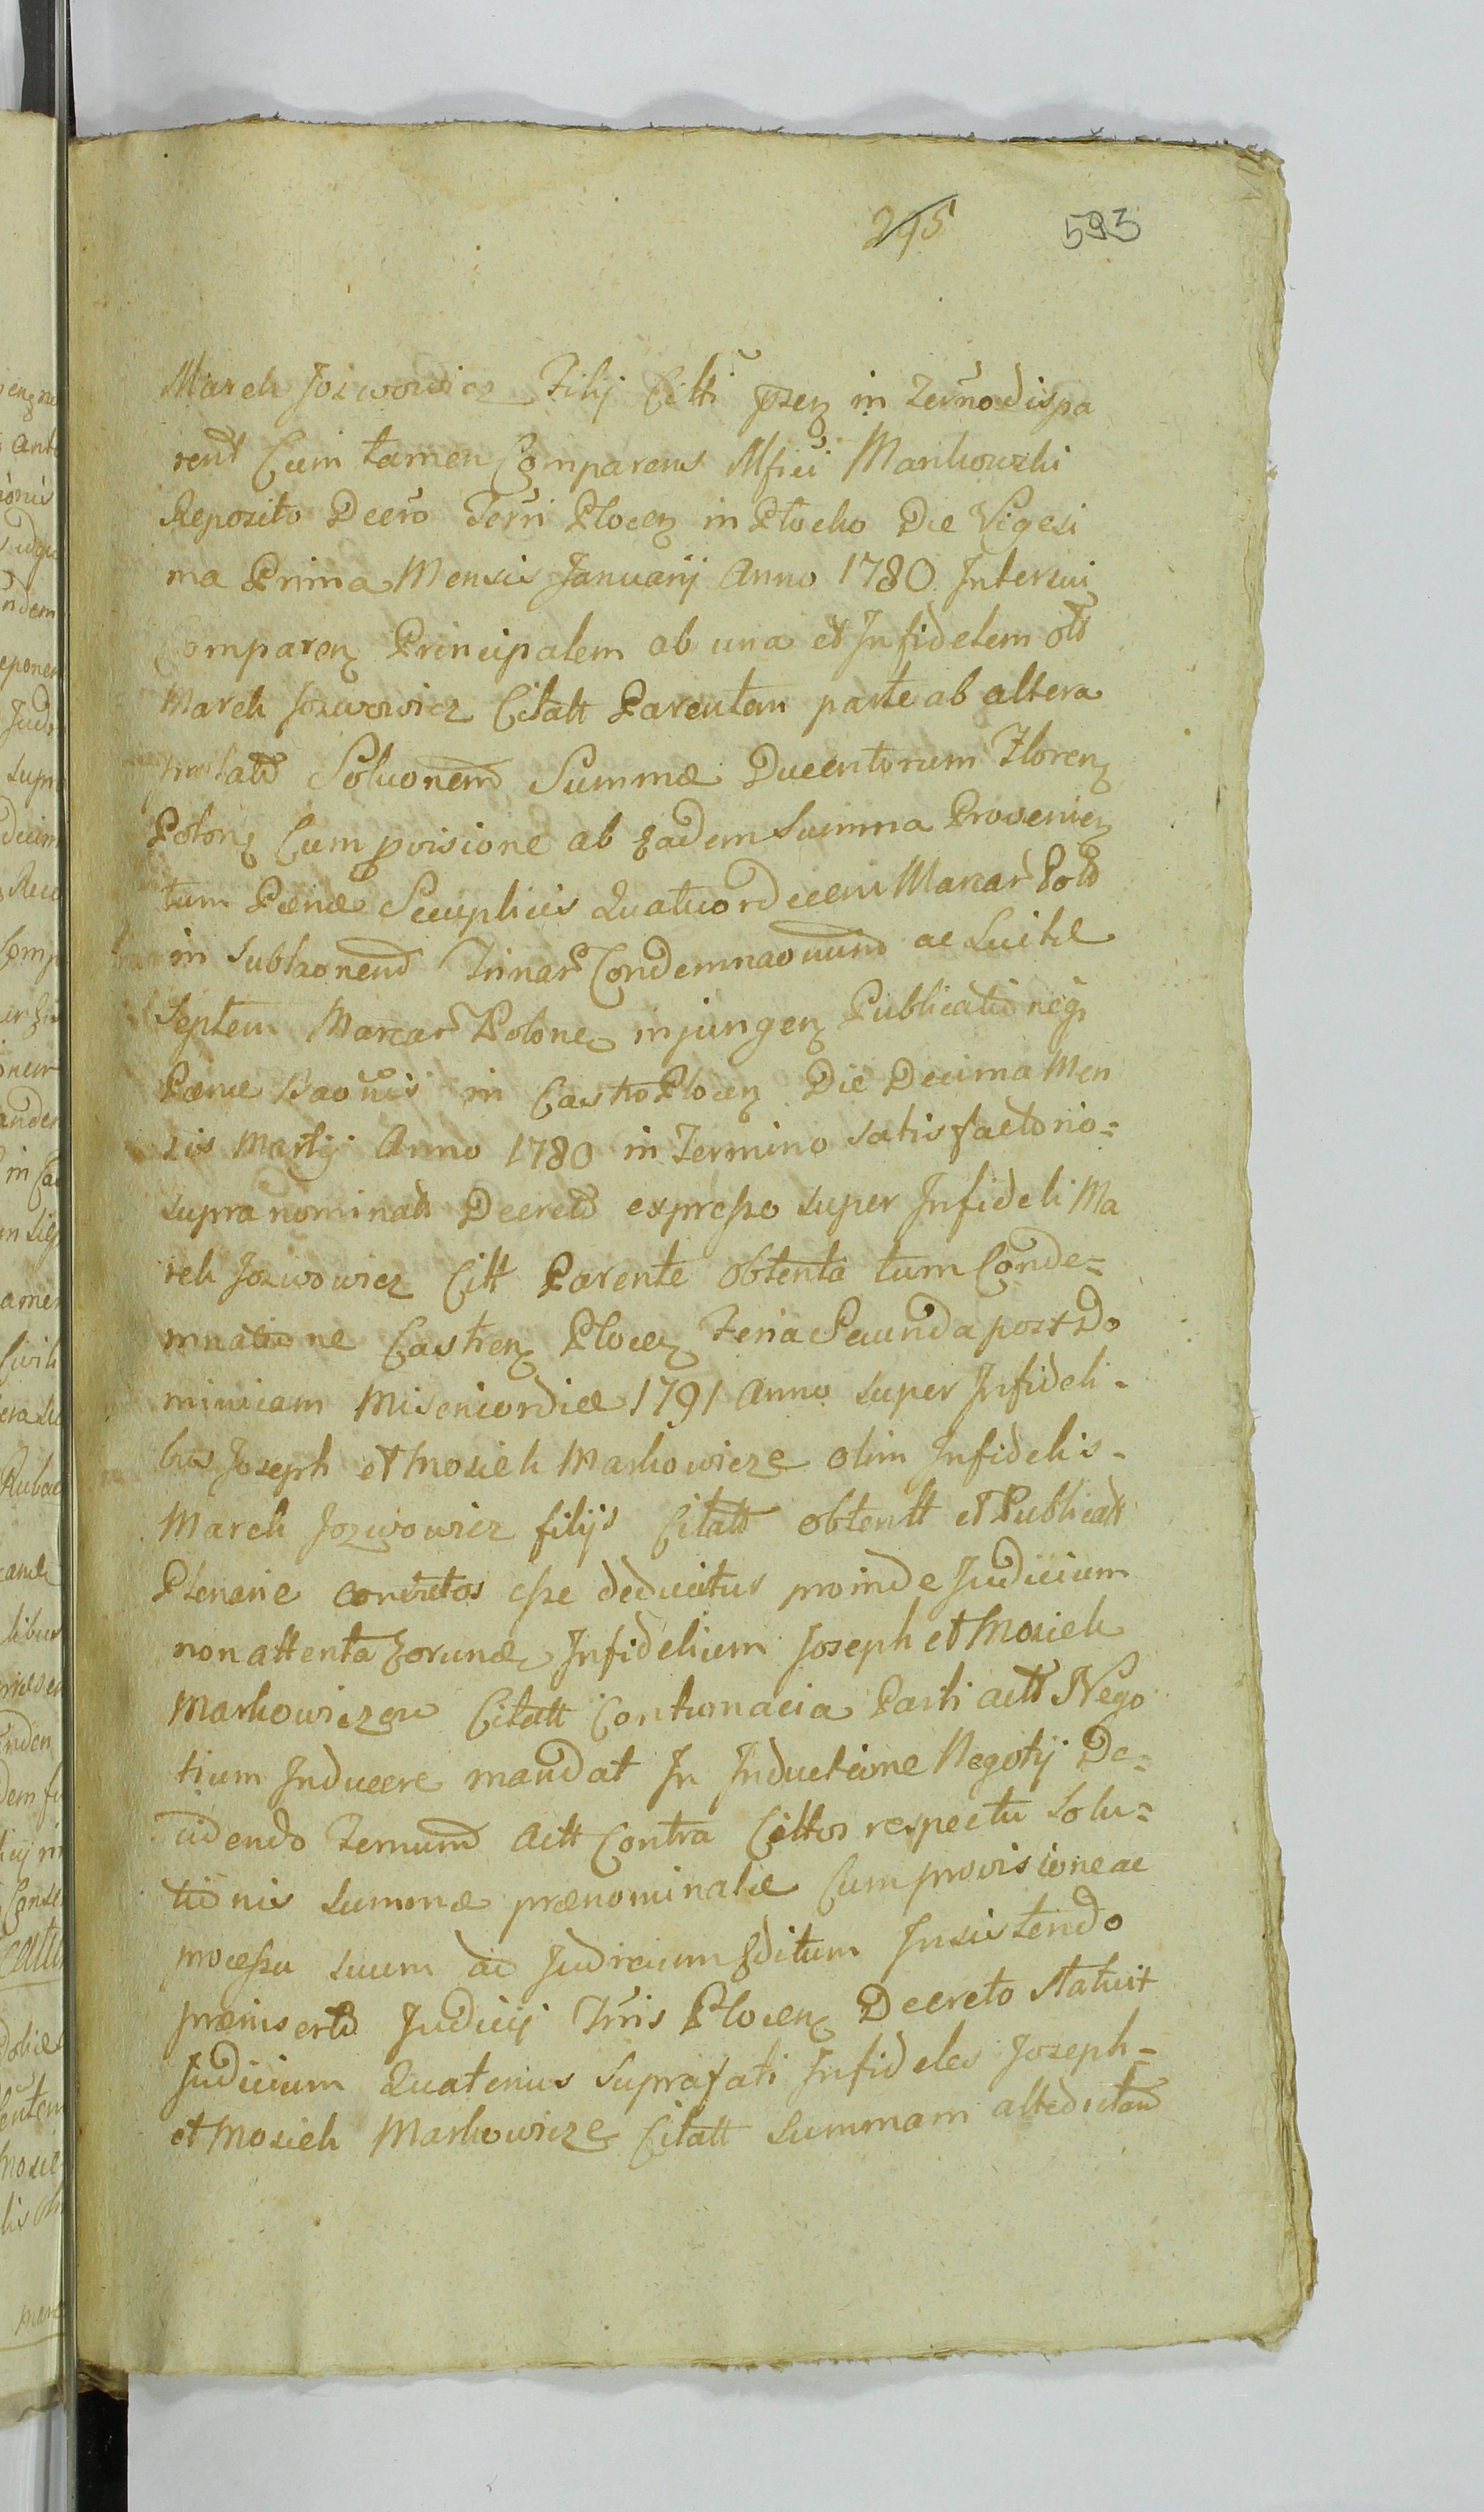 295 593
Marek Jozwowicz Filij Citti in Termo dispa
rent Cum tamen Comparens Mfici Mankowski
Reposito Decro Terri Plocen in Plocko Die Vigesi
ma Prima Mensis Januarij Anno 1780 Inter sui
Comparen Principalem ab una et Infidelem olt
Marek Jozwowicz Citatt Parentem parte ab altera
Soluonem Summæ Ducentorum Floren
Polon Cum pvisione ab Eadem Summa Provenien
tum Pænæ Sccuplicis Quatuordecem Marcar Pold
in Subltaonem Trinar Condemnaonum ac Luitæ
Septem Marcar Polone injungen Publicationeq
Pænæ Baonis in Castro Plocen Die Decima Men
sis Martij Anno 1780 in Termino satisfactorio=
supra nominati Decreto expresso super Infideli Ma
rek Jozwowicz Citt Parente obtenta tum Conde=
mnatione Castren Plocen Feria Secunda post Do
minicam Misericordiæ 1791 Anno super Infideli-
bus Joseph et Mosiek Markowicze olim Infidelis-
Marek Jozwowicz filijs Citatt obtentt et Publicatt
Plenarie convictos esse deducitur proinde Judicium
non attenta Eorunde Infidelium Joseph et Mosiek
Markowiczow Citatt Contumacia Parti actt Nego
tium Inducere mandat In Inductione Negotij De=
cidendo Ternum Actt Contra Cittos respectu Solu=
tionis Summæ prænominatæ Cum provisione ac
processu suum ad Judicium Editum Insistendo
præinserto Judicij Trris Plocen Decreto statuit
Judicium Quatenus Suprafati Infideles Joseph-
et Mosiek Markowicze Citatt Summam altedictam